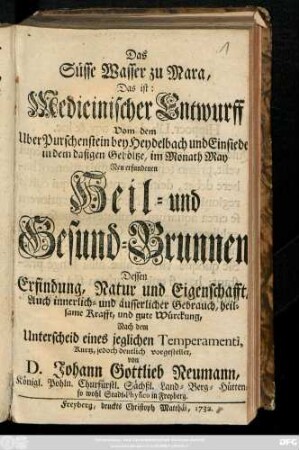 1
Das
Süsse Wasser zu Mara,
Das ist:
Medicinischer Entwurff
Vom dem
Uber Purschenstein bey Heydelbach und Einsiedel
in dem dasigen Gehöltze, im Monath May
Neu erfundenen
Heil- und
Gesund-Brunnen
Dessen
Erfindung, Natur und Eigenschafft,
Auch innerlich- und äusserlicher Gebrauch, heil-
same Krafft, und gute Würckung,
Nach dem
Unterscheid eines jeglichen Temperamenti,
Kurtz, jedoch deutlich vorgestellet,
von
D. Johann Gottlieb Neumann,
Königl. Pohln. Churfürstl. Sächsl. Land- Berg- Hütten-
so wohl Stadt-Physico in Freyberg.
Freyberg, druckts Christoph Matthäi, 1732.